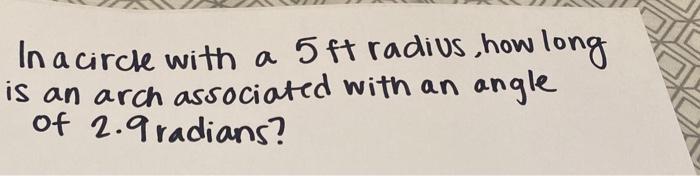 In a circle with a 5 ft radius, how long
is an arch associated with an angle
of 2.9 radians?